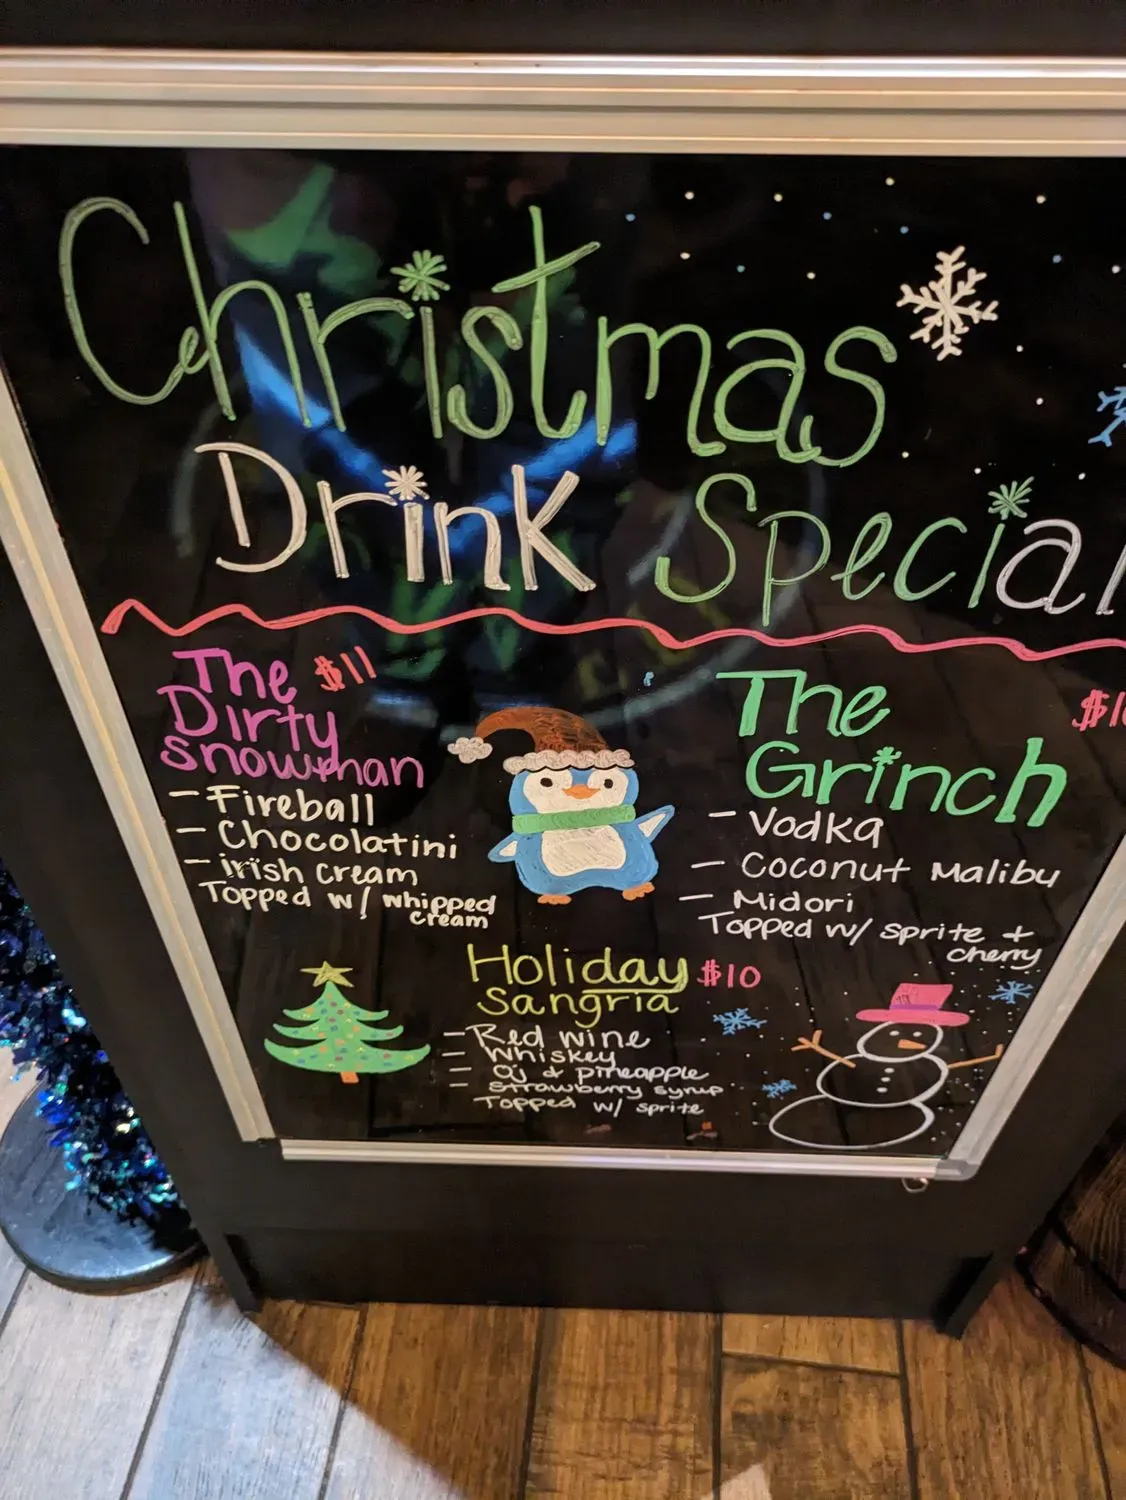 Christmas
Drink Special
The $11
Dirty
snowman
- Fireball
- Chocolatini
- irish cream
Topped w/ whipped
cream
The
Grinch
- Vodka
- Coconut Malibu
- Midori
Topped w/ sprite +
cherry
Holiday $10
Sangria
- Red wine
- Whiskey
- Oj & pineapple
- Strawberry syrup
Topped w/ sprite